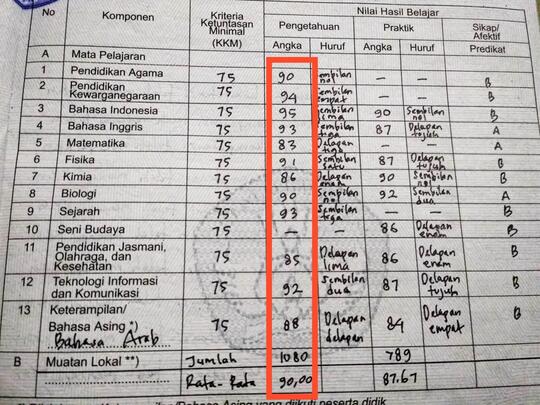 No Komponen Kriteria Ketuntasan Minimal (KKM) Nilai Hasil Belajar
Pengetahuan Praktik Sikap/Afektif
Angka Huruf Angka Huruf Predikat
A Mata Pelajaran
1 Pendidikan Agama 75 90 Sembilan nol — — B
2 Pendidikan Kewarganegaraan 75 94 Sembilan empat — — B
3 Bahasa Indonesia 75 95 Sembilan lima 90 Sembilan nol B
4 Bahasa Inggris 75 93 Sembilan tiga 87 Delapan tujuh A
5 Matematika 75 83 Delapan tiga — — A
6 Fisika 75 91 Sembilan satu 87 Delapan tujuh B
7 Kimia 75 86 Delapan enam 90 Sembilan nol B
8 Biologi 75 90 Sembilan nol 92 Sembilan dua A
9 Sejarah 75 93 Sembilan tiga — — B
10 Seni Budaya 75 — — 86 Delapan enam B
11 Pendidikan Jasmani, Olahraga, dan Kesehatan 75 85 Delapan lima 86 Delapan enam B
12 Teknologi Informasi dan Komunikasi 75 92 Sembilan dua 87 Delapan tujuh B
13 Keterampilan/ Bahasa Asing *) Bahasa Arab 75 88 Delapan delapan 84 Delapan empat B
B Muatan Lokal **) Jumlah 1080 789
Rata-Rata 90,00 87.67